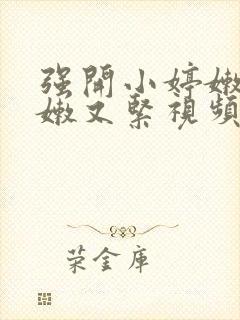 强開小婷嫩
嫩又緊視頻
荣金庫